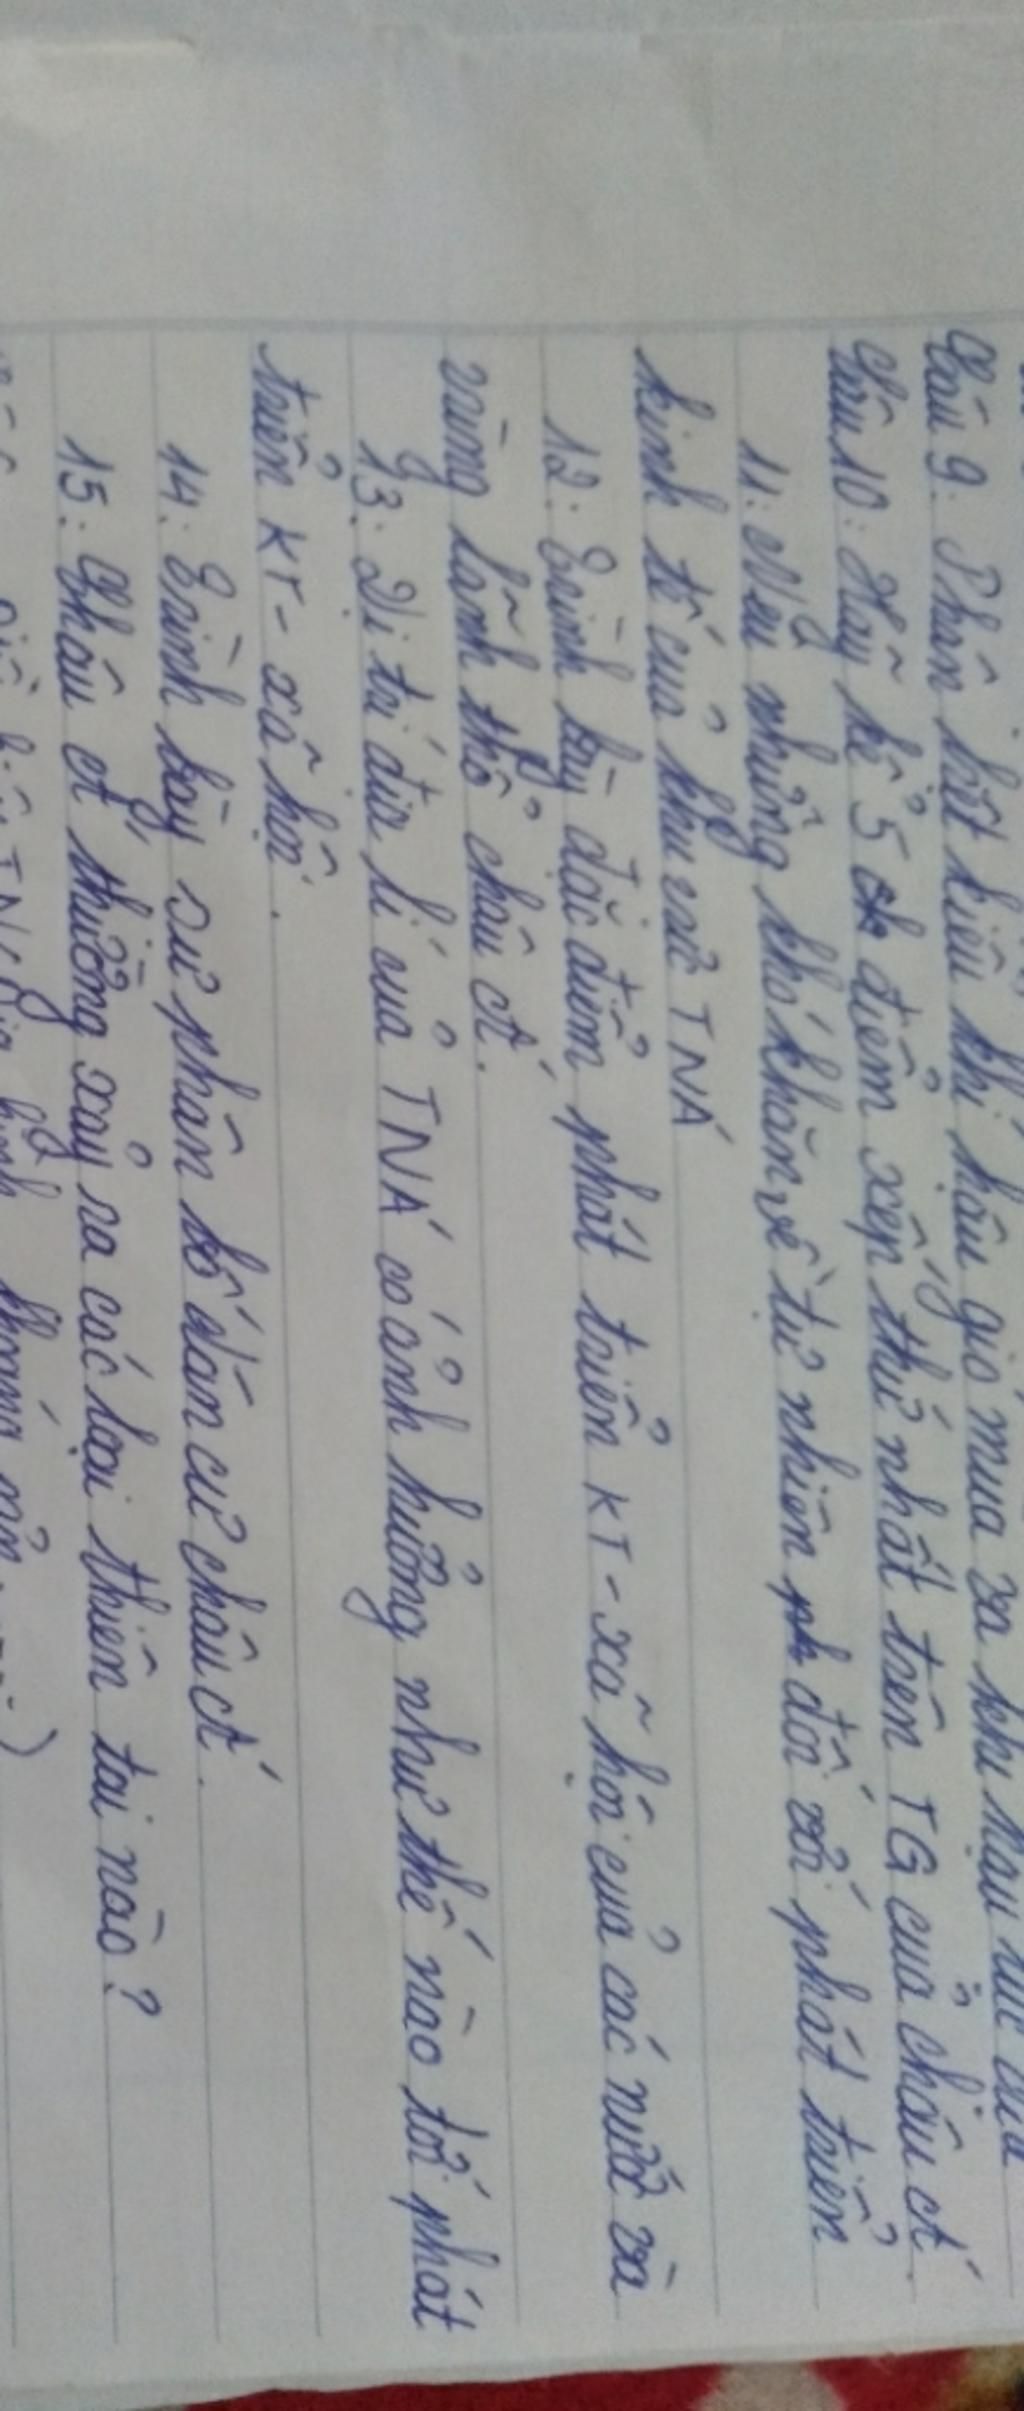 Câu 9: Phân biệt kiểu khí hậu gió mùa và khí hậu lục địa
Câu 10: Hãy kể 5 đặc điểm xếp thứ nhất trên TG của châu Á.
11: Nêu những khó khăn về tự nhiên đối với phát triển
kinh tế của khu vực TNÁ
12: Trình bày đặc điểm phát triển KT - xã hội của các nước và
vùng lãnh thổ châu Á.
13: Vị trí địa lí của TNÁ có ảnh hưởng như thế nào tới phát
triển KT - xã hội.
14: Trình bày sự phân bố dân cư châu Á.
15: Châu Á thường xảy ra các loại thiên tai nào?